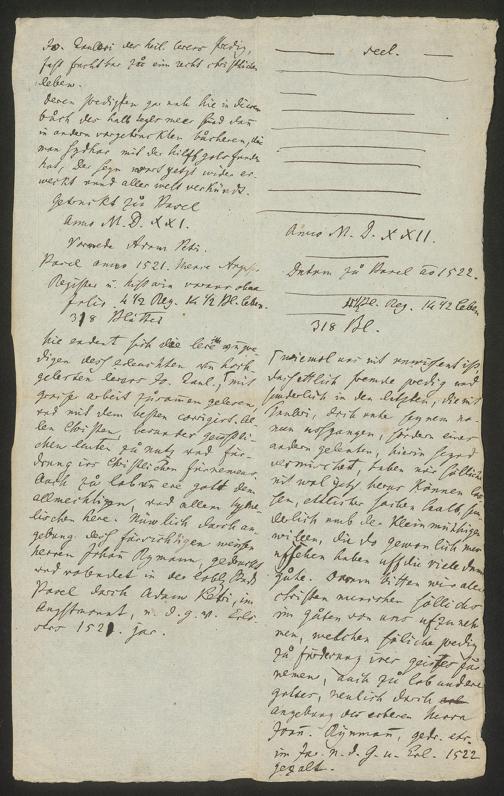 Jo. Tauleri des heil. lerers Predig,
fast fruchtbar zu eim recht christlichen
leben.
Deren Predigten gar nah hie in disem
buch des halb teyls meer sind dann
in andern vorgetruckten bücheren, die
man sydhar mit der hilff gots funden
hat, Der seyn wort yetzt wider er-
weckt und aller welt verkündt.
Getruckt zu Basel
Anno M. D. XXI.
Vorrede Adam Petri.
Basel anno 1521.
Register
folio. 4 1/2 Reg. Bl. leben.
318 Blätter
Hie endent sich die
digen des erleuchten
gelerten lerers Jo. Taul., mit
grosser arbeit zusamen gelesen,
und mit dem besten corrigirt. Al-
len Christen, besunder geystli-
chen leuten zu nutz und für-
drung irs Christlichen fürnemens.
Auch zu lob und ere gott dem
allmechtigen, und allem hyme-
lischen here. Nüwlich durch an-
gebung des fürsichtigen weysen
herren Johan Rynmann, gedruckt
und volendet in der lobl. Stadt
Basel durch Adam Petri, im
Augstmonat, n. d. g. u. Erlö-
sers 1521. jar.
seel.
Anno M. D. XXII.
Datum zu Basel ao 1522.
Bl. Reg. leben
318 Bl.
Wiewol uns nit unwissent ist,
das ettlich fremde predig und
sunderlich in den letsten, die nit
Tauleri, doch unter seynem na-
men ussgangen, sondern eines
andern gelerten, hierin seyend
vermischet, haben wir sölliche
nit wol yetz heruss können
sen, ettlicher sachen halb, sun-
derlich umb der kleinmütigen
willen, die do gewonlich mer
uffsehen haben uff die viele dann
güte. Darum bitten wir alle
christen menschen söllichs
im guten von uns ufzuneh-
men, welchen söliche predig
zu fürderung irer geister für-
nemen, auch zu lob und ere
gottes, neulich durch
angebung des erberen herrn
Joan. Rynman, gedr. etc.
im Jar n. d. G. u. Erl. 1522
gezalt.